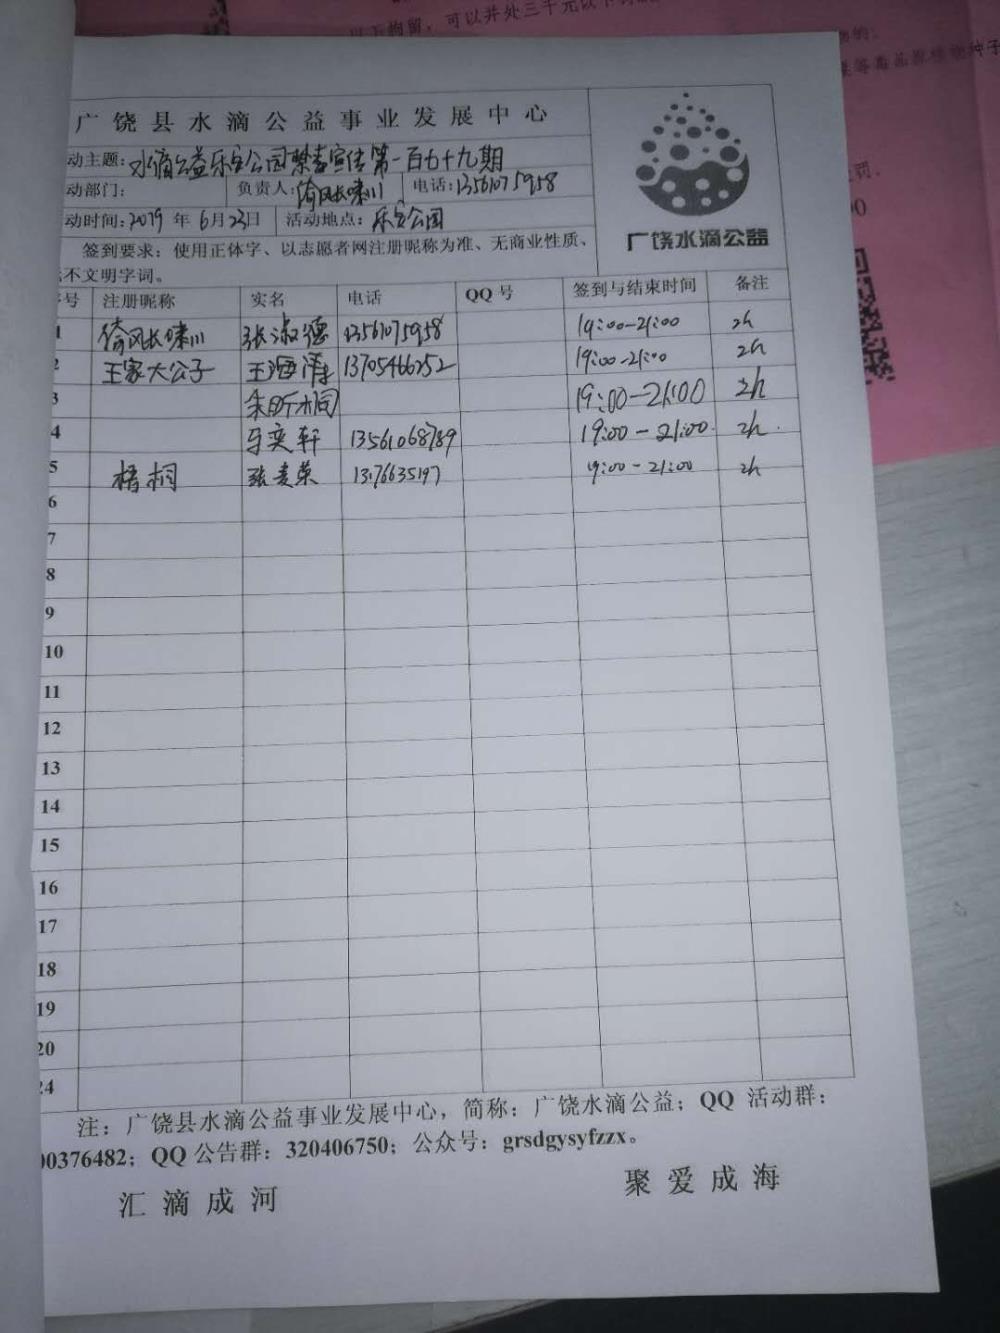 以下拘留，可以并处三千元以下
物的；
等毒品原植物种子
罚.
00
广饶县水滴公益事业发展中心
动主题：水滴公益乐安公园禁毒宣传第一百七十九期
动部门： 负责人：倚风长啸川 电话：13561075958
动时间：2019 年 6月23日 活动地点：乐安公园
签到要求：使用正体字、以志愿者网注册昵称为准、无商业性质、
不文明字词。
广饶水滴公益
号 注册昵称 实名 电话 QQ 号 签到与结束时间 备注
1 倚风长啸川 张淑德 13561075958 19:00-21:00 2h
2 王家大公子 王海清 13705466252 19:00-21:00 2h
3 19:00-21:00 2h
4 马奕轩 13561068789 19:00-21:00 2h
5 梧桐 张麦荣 1376635197 19:00-21:00 2h
6
7
8
9
10
11
12
13
14
15
16
17
18
19
20
24
注：广饶县水滴公益事业发展中心，简称：广饶水滴公益；QQ 活动群：
00376482；QQ 公告群：320406750；公众号：grsdgysyfzzx。
汇滴成河 聚爱成海